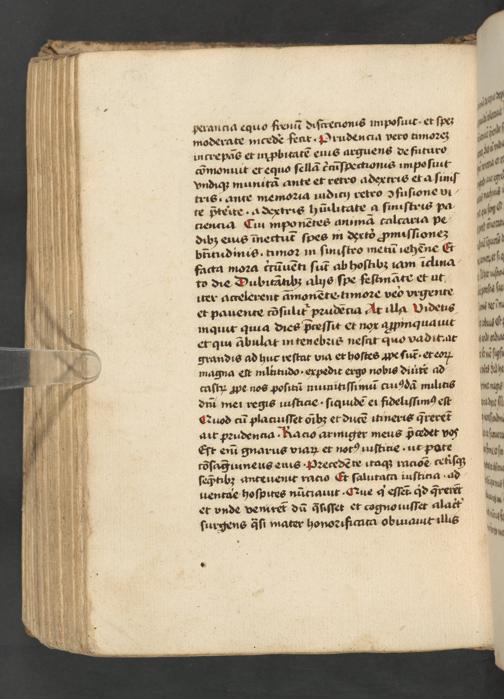 perancia equo frenū discrecionis imposuit · et spez
moderate incedē fecit · Prudencia vero timorez
increpās et īꝓbitatē eius arguens de futuro
cōmonuit et equo sellā cͨūspectionis imposuit
vndiqꝫ munitā ante et retro a dextris et a sinis
tris · ante memoria iudicii retro ↄfusione vi
te p̄terite · a dextris hūilitate a sinistris pa
ciencia Cui imponētes animā calcaria pe
dibꝫ eius inectūt spes in dextō ꝓmissionez
btītudinis · timor in sinistro metū iehēne Et
facta mora cͨūuēti sūt ab hostibꝫ iam īclina
to die Dubitātibꝫ alijs spe festināte et ut
iter accelerent āmonēte · timore veō vrgente
et pauente cōsulitͬ prudēcia At illa Videtis
inquit quia dies p̄cessit et nox aꝓpinquauit
et qui ābulat in tenebris nescit quo vadit · at
grandis ad huc restat via et hostes ꝓpe sunt · et eoꝝ
magna est mltitudo · expedit ergo nobis diūte ad
castꝝ ꝓpe nos positū munitissimū cuiꝰdā militis
dnī mei regis iusticie · siquidē ei fidelissimꝰ est
Quod cū placuisset oībꝫ et ducē itineris q̄rerēt
ait prudencia · Racio armiger meus p̄cedet vos
Est enī gnarus viaꝝ et notꝰ iusticie · ut pote
cōsāguineus eius · Precedēte itaqꝫ racione ceteisqꝫ
seq̄ntibꝫ anteuenit racio Et salutata iusticia · ad
uentāe hospites nūciauit · Que qͥ essēt qͥd q̄rerēt
et vnde venirēt dū q̄sisset et cognouisset alacͬt
surgens qͣsi mater honorificata obuiauit illis